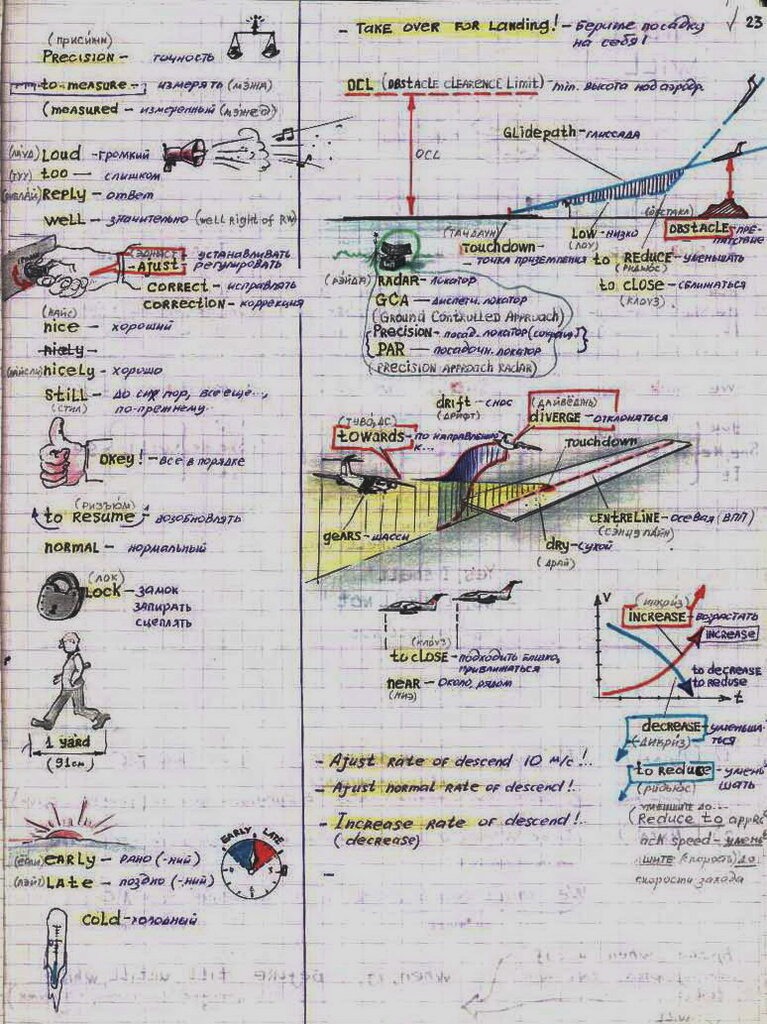 (присижн)
PRECISION - точность
to measure - измерять (мэжа)
(measured - измеренный (мэжед)
(лауд) Loud - громкий
(туу) too - слишком
Reply - ответ
well - значительно (well Right of RW)
Ajust - устанавливать
регулировать
CORRECT - исправлять
CORRECTION - коррекция
(найс)
nice - хороший
nicely
(найсли) nicely - хорошо
Still - до сих пор, все еще...,
(стил) по-прежнему.
OKey! - все в порядке
(ризъюм)
to Resume - возобновлять
NORMAL - нормальный
(лок)
LOCK - замок
запирать
сцеплять
1 yard
(91см)
EARLY - рано (-ний)
(лэйт) LATE - поздно (-ний)
EARLY LATE
COLD - холодный
23
- Take over FOR Landing! - Берите посадку
на себя!
OCL (OBSTACLE CLEARENCE Limit) - min. высота над аэродр.
GLidepath - глиссада
OCL
(тачдаун)
Touchdown -
точка приземления
Low - низко
(лоу)
(обстакл)
OBSTACLE - пре-
пятствие
to REDUCE - уменьшать
(ридьюс)
to close - сближаться
(клоуз)
(рэйда) RADAR - локатор
GCA - диспетч. локатор
(Ground Controlled Approach)
Precision - посад. локатор (сокращ)
PAR - посадочн. локатор
(PRECISION APPROACH RADAR)
drift - снос
(дрифт)
(дайвёдж)
DIVERGE - отклоняться
(туво́дс)
towards - по направлению
к...
TOUCHDOWN
GEARS - шасси
CENTRELINE - осевая (ВПП)
(сэнтэлайн)
dry - сухой
(драй)
(клоуз)
to CLOSE - подходить близко,
приближаться
NEAR - около, рядом
(ниэ)
V
(инкриз)
INCREASE - возрастать
INCREASE
to decrease
to reduse
t
decrease - уменьша-
(дикриз) ться
to Reduce - умень-
(ридьюс) шать
уменьшите до...
(Reduce to appRo
ach speed - умень
шите скорость до
скорости захода
- Ajust Rate of descend 10 м/с!..
- Ajust normal Rate of descend!..
- Increase Rate of descend!..
(decrease)